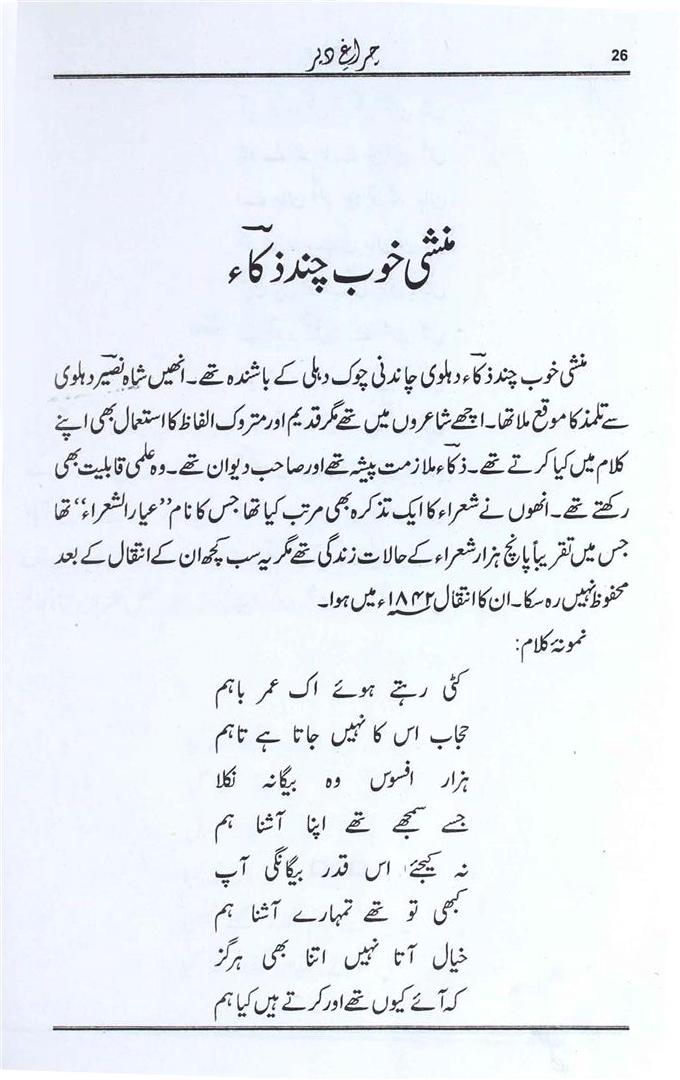 26
چراغِ دیر
منشی خوب چند ذکاء
منشی خوب چند ذکاء دہلوی چاندنی چوک دہلی کے باشندہ تھے۔ انھیں شاہ نصیر دہلوی
سے تلمذ کا موقع ملا تھا۔ اچھے شاعروں میں تھے مگر قدیم اور متروک الفاظ کا استعمال بھی اپنے
کلام میں کیا کرتے تھے۔ ذکاء ملازمت پیشہ تھے اور صاحب دیوان تھے۔ وہ علمی قابلیت بھی
رکھتے تھے۔ انھوں نے شعراء کا ایک تذکرہ بھی مرتب کیا تھا جس کا نام ”عیار الشعراء“ تھا
جس میں تقریباً پانچ ہزار شعراء کے حالات زندگی تھے مگر یہ سب کچھ ان کے انتقال کے بعد
محفوظ نہیں رہ سکا۔ ان کا انتقال ۱۸۴۲ء میں ہوا۔
نمونۂ کلام:
کٹی رہتے ہوئے اک عمر باہم
حجاب اس کا نہیں جاتا ہے تاہم
ہزار افسوس وہ بیگانہ نکلا
جسے سمجھے تھے اپنا آشنا ہم
نہ کیجئے اس قدر بیگانگی آپ
کبھی تو تھے تمہارے آشنا ہم
خیال آتا نہیں اتنا بھی ہرگز
کہ آئے کیوں تھے اور کرتے ہیں کیا ہم